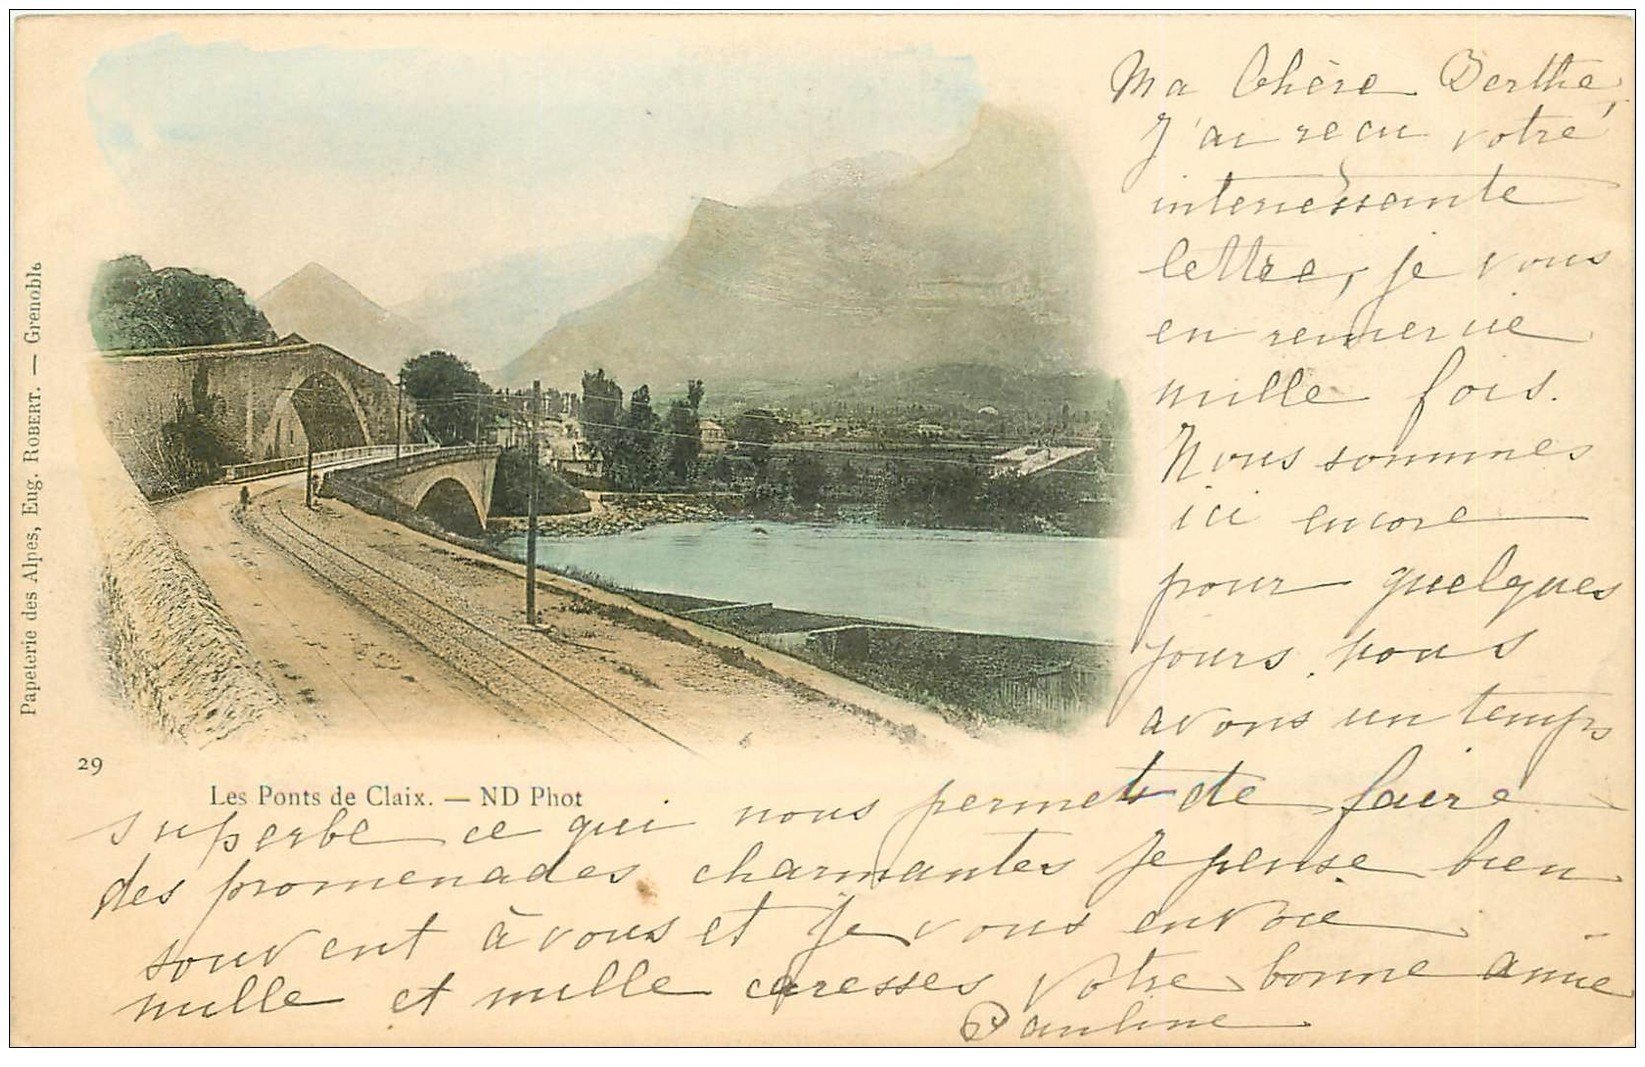 Ma Chère Berthe,
J'ai reçu votre
interressante
lettre, je vous
en remercie
mille fois.
Nous sommes
ici encore
pour quelques
jours, nous
avons un temps
superbe ce qui nous permet de faire
des promenades charmantes Je pense bien
souvent à vous et Je vous envoie
mille et mille caresses Votre bonne amie
Pauline
29
Les Ponts de Claix. — ND Phot
Papeterie des Alpes, Eug. ROBERT. — Grenoble